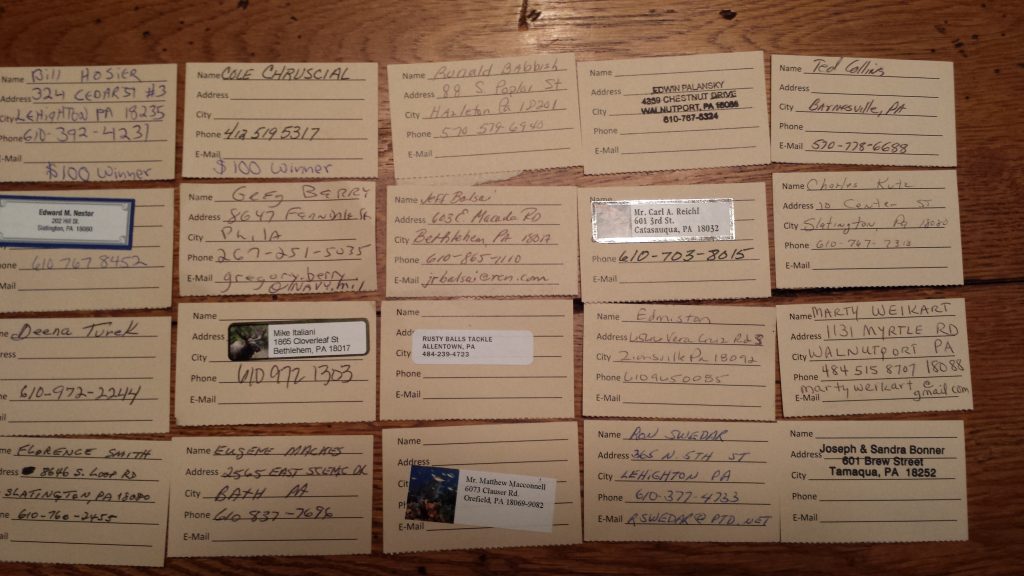 Name Bill HOSIER
Address 324 CEDAR ST #3
City LEHIGHTON PA 18235
Phone 610-392-4231
E-Mail
$100 Winner
Name COLE CHRUSCIAL
Address
City
Phone 412 519 5317
E-Mail
$100 Winner
Name Ronald Babbish
Address 88 S. Poplar St
City Hazleton Pa 18201
Phone 570 579-6940
E-Mail
Name
EDWIN PALANSKY
Address 4259 CHESTNUT DRIVE
City WALNUTPORT, PA 18088
Phone 610-767-6324
E-Mail
Name Ted Collins
Address
City BARNESVILLE, PA
Phone
E-Mail 570-778-6688
Edward M. Nester
202 Hill St.
Slatington, PA 18080
Phone 610 767 8452
E-Mail
Name Greg BERRY
Address 8647 FERNDALE St
City PhilA
Phone 267-251-5035
E-Mail gregory.berry
@NAVY.mil
Name Jeff Balsai
Address 603 E. Macada RD
City Bethlehem, PA 18017
Phone 610-865-7110
E-Mail jrbalsai@rcn.com
Name
Mr. Carl A. Reichl
601 3rd St.
Catasauqua, PA 18032
Phone 610-703-8015
E-Mail
Name Charles Kutz
Address 10 Center St
City Slatington Pa 18080
Phone 610-767-7310
E-Mail
Name Deena Turek
Address
City
Phone 610-972-2244
E-Mail
Name
Address Mike Italiani
1865 Cloverleaf St
City Bethlehem, PA 18017
Phone 610 972 1303
E-Mail
Name
Address RUSTY BALLS TACKLE
ALLENTOWN, PA
City 484-239-4723
Phone
E-Mail
Name Edmiston
Address Vera Cruz Rd S
City Zionsville Pa 18092
Phone 6109650085
E-Mail
Name MARTY WEIKART
Address 1131 MYRTLE RD
City WALNUTPORT PA
Phone 484 515 8707 18088
E-Mail marty weikart@
gmail.com
Name FLORENCE SMITH
Address 8646 S. LOOP RD
City SLATINGTON, PA 18080
Phone 610-760-2455
E-Mail
Name EUGENE MACKES
Address 2565 EAST SCENIC DR
City BATH PA
Phone 610 837-7696
E-Mail
Name
Address
Mr. Matthew Macconnell
6073 Clauser Rd.
Orefield, PA 18069-9082
E-Mail
Name RON SWEDAR
Address 365 N. 5TH ST
City LEHIGHTON PA
Phone 610-377-4733
E-Mail RSWEDAR@PTD.NET
Name
Joseph & Sandra Bonner
Address 601 Brew Street
City Tamaqua, PA 18252
Phone
E-Mail